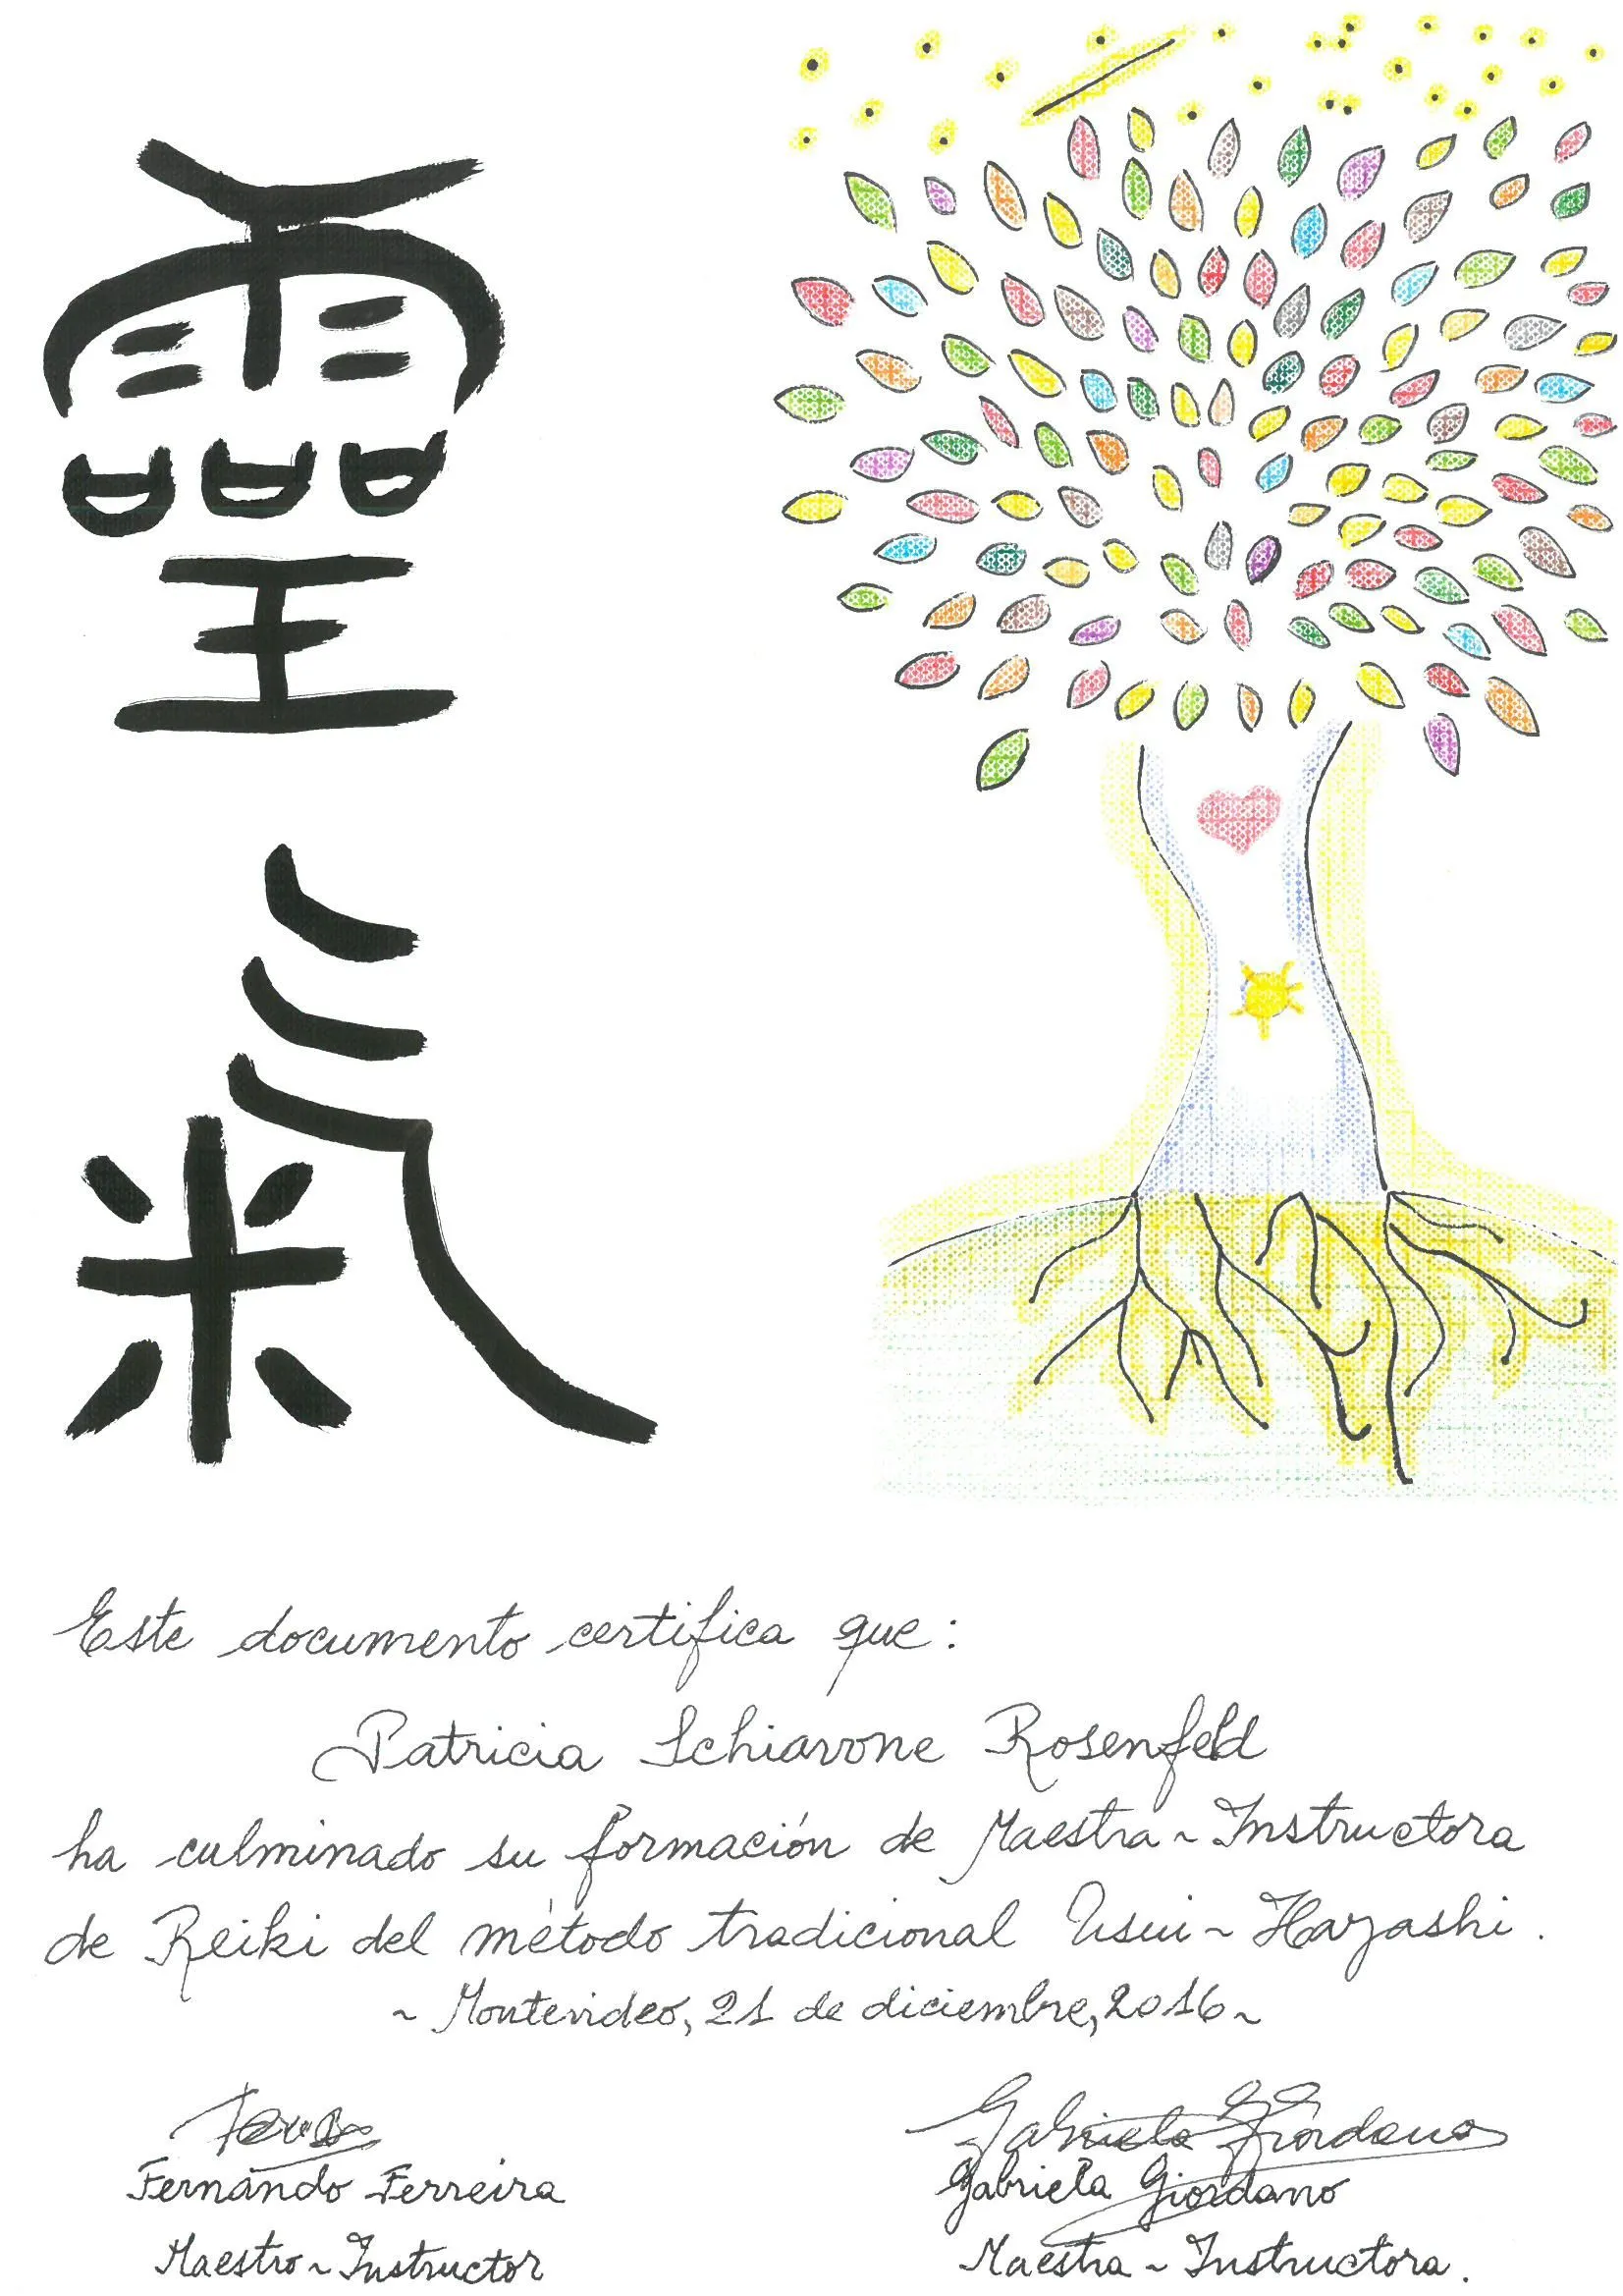 靈
氣
Este documento certifica que:
Patricia Schiavone Rosenfeld
ha culminado su formación de Maestra ~ Instructora
de Reiki del método tradicional Usui ~ Hayashi.
~ Montevideo, 21 de diciembre, 2016 ~
Gabriela Giordano
Fernando Ferreira
Gabriela Giordano
Maestro ~ Instructor
Maestra ~ Instructora.